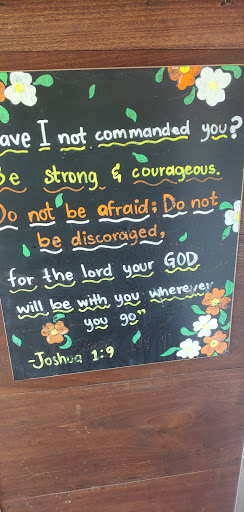 ave I not commanded you?
Be strong & courageous.
Do not be afraid; Do not
be discoraged,
for the lord your GOD
will be with you wherever
you go"
-Joshua 1:9